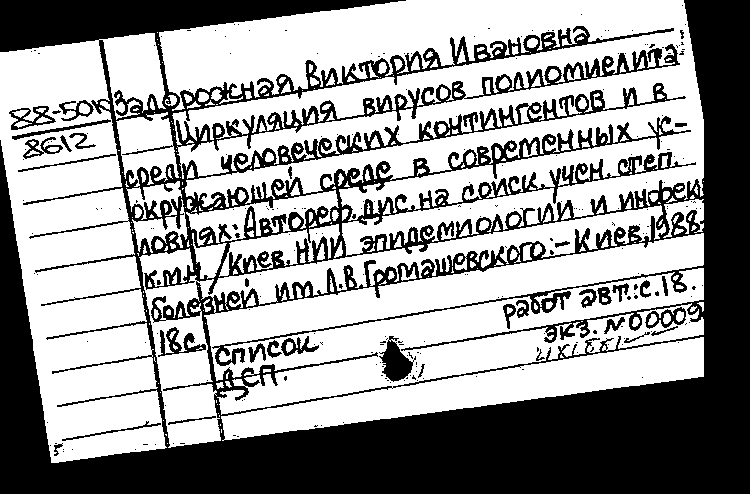 88-5010 Задорожная, Виктория Ивановна.
8612 Циркуляция вирусов полиомиелита
среди человеческих контингентов и в
окружающей среде в современных ус-
ловиях: Автореф. дис. на соиск. учен. степ.
к.м.н. / Киев. НИИ эпидемиологии и инфек
болезней им. Л.В. Громашевского. – Киев, 1988.-
18 с.
список работ авт.: с. 18.
ДСП. экз. №00009